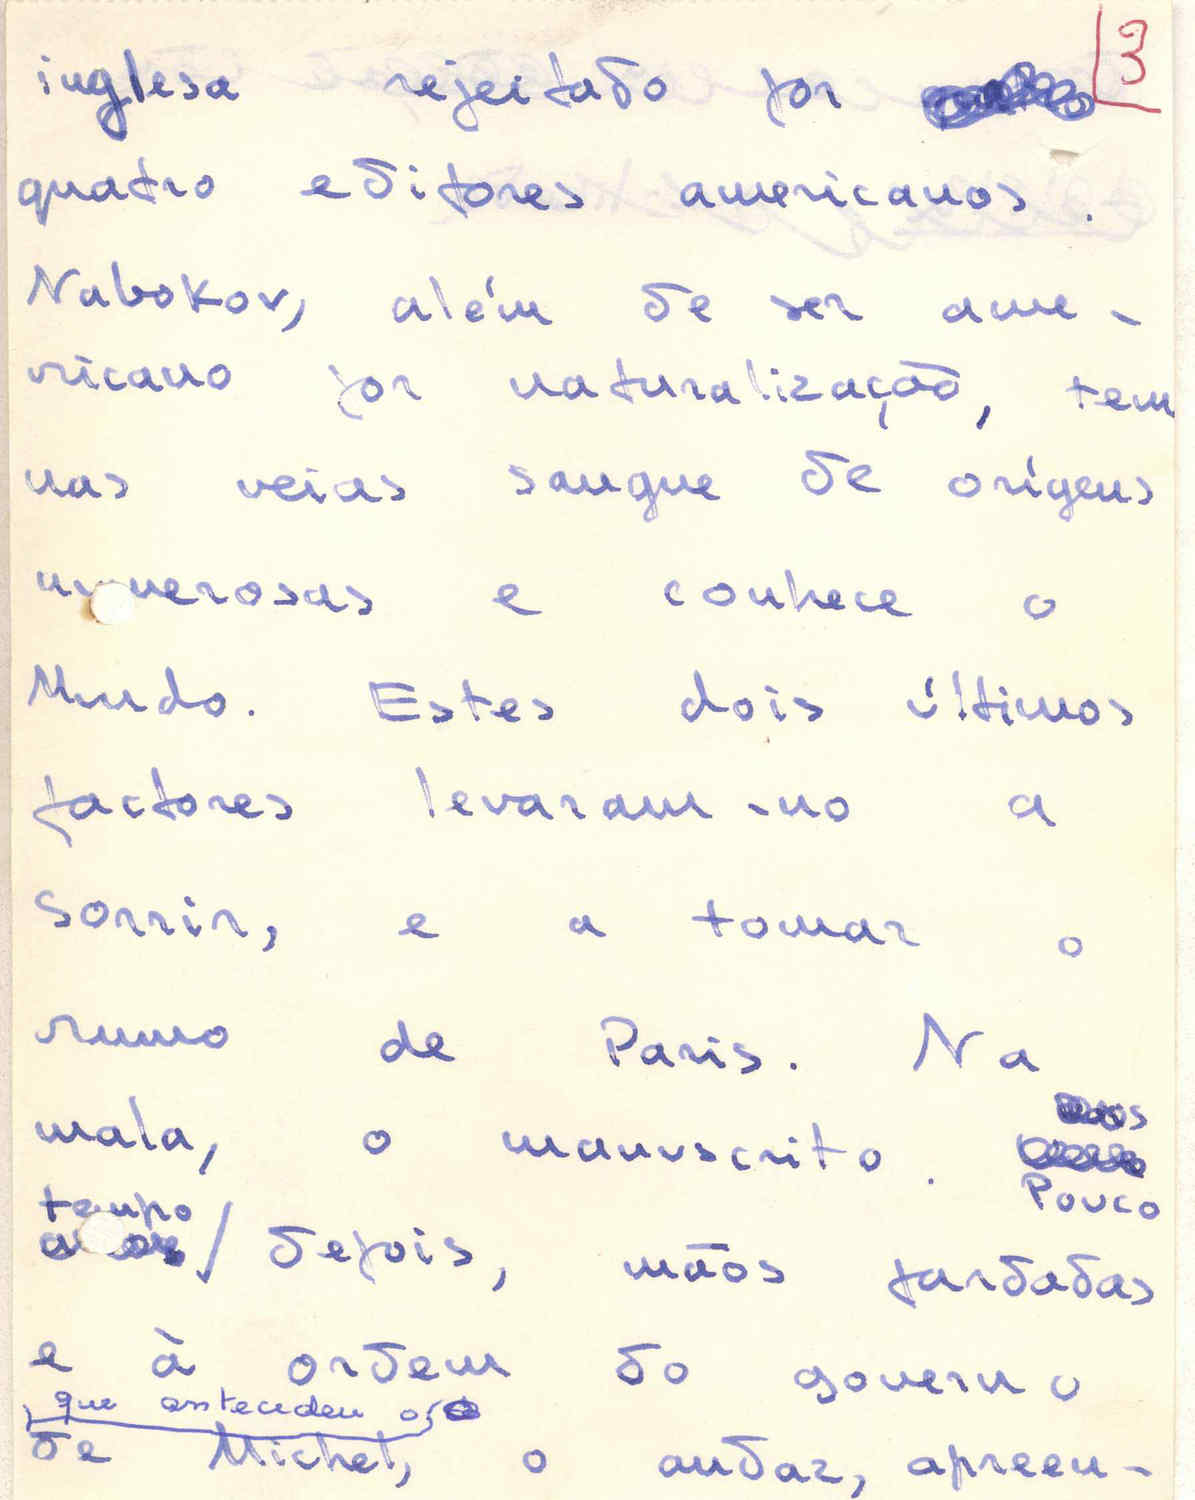 3
inglesa rejeitado por
quatro editores americanos.
Nabokov, além de ser ame-
ricano por naturalização, tem
nas veias sangue de orígens
numerosas e conhece o
Mundo. Estes dois últimos
factores levaram-no a
sorrir, e a tomar o
rumo de Paris. Na
mala, o manuscrito. Pouco
tempo / depois, mãos fardadas
e à ordem do governo
que antecedeu o
de Michel, o audaz, apreen-